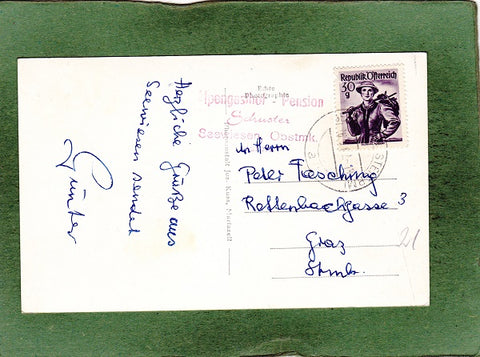 Herzliche Grüße aus
Seewiesen sendet
Günter
Echte
Photographie
Alpengasthof - Pension
Schuster
Seewiesen, Obstmk.
Republik Österreich
30
g
Herrn
Peter Fasching
Rottenbachgasse 3
Graz
Stmk.
21